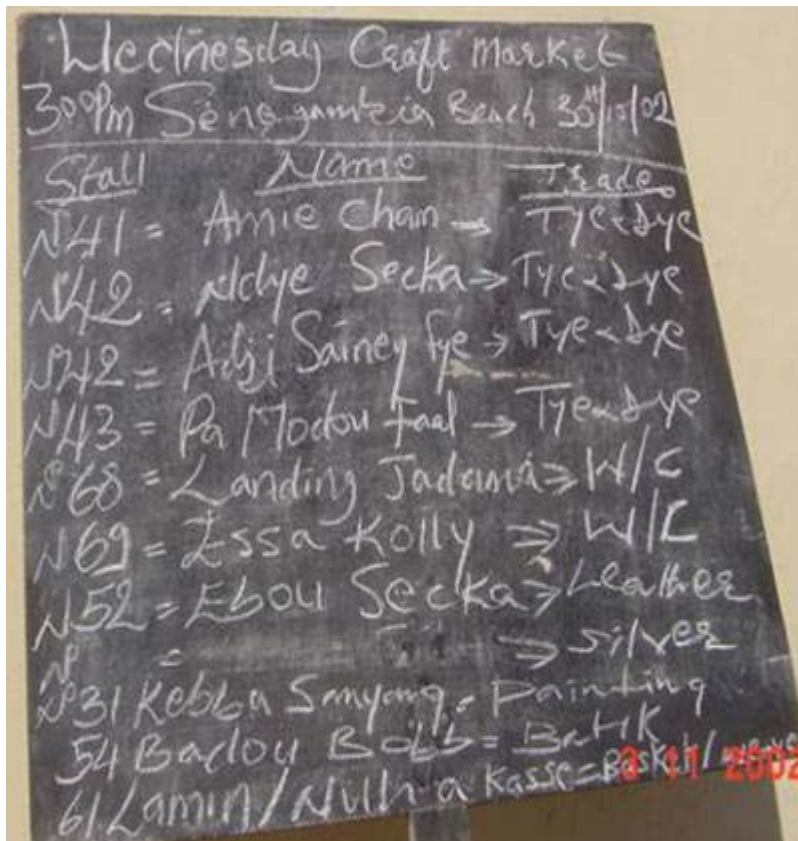 Wednesday Craft Market
3°°Pm Senegambia Beach 30th/10/02
Stall Name Trade
N°41 = Amie Chan → Tye & Dye
N°42 = Ndye Secka → Tye & Dye
N°42 = Adji Sainey Fye → Tye & Dye
N°43 = Pa Modou Faal → Tye & Dye
N°68 = Landing Jadama → W/C
N°69 = Essa Kolly → W/C
N°52 = Ebou Secka → Leather
N° = → Silver
N°31 Kebba Sanyang = Painting
54 Badou Bobb = Batik
61 Lamin / Kasse = Basket /
3 11 2002